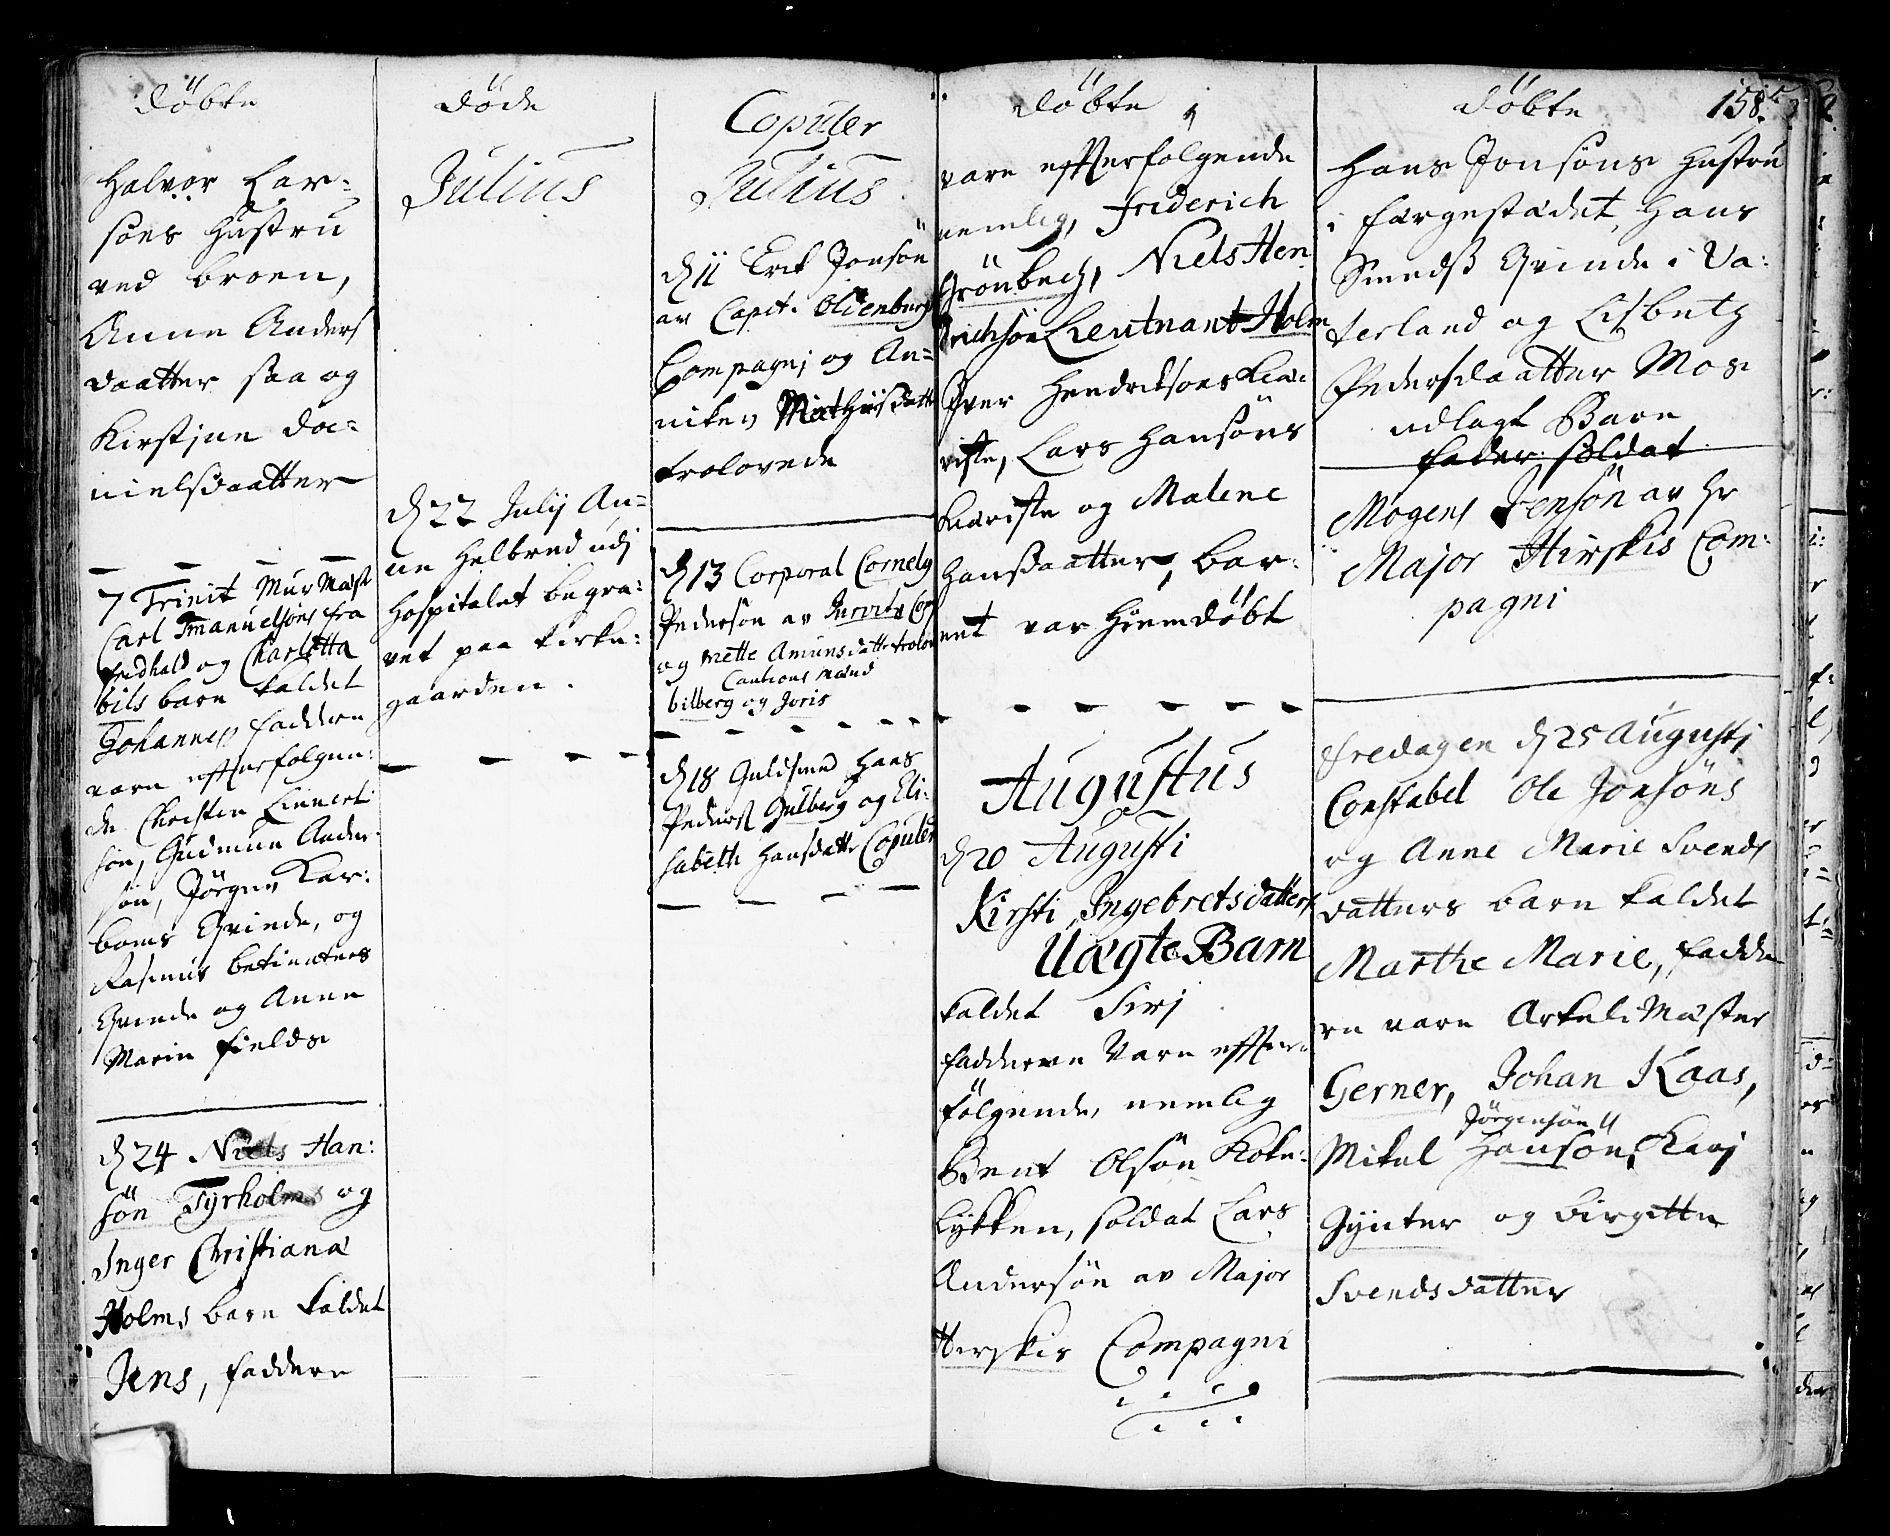 Döbte
Halvor Lar=
söns Hustru
ved broen,
Anne Anders
daatter saa og
Kirstine Da=
nielsdaatter
7 Trinit Mur Mæst
Carl Imanuelsöns fra
Fridhald og Charlotta
bils barn kaldet
Johannes faddere
vare effterfölgen:
de Christen Linnert
sön, Gudmun Ander
sön, Jörgen Kar:
boms Qvinde, og
Rasmus betientes
Qvinde og Anne
Marie Fields
d 24 Niels Han:
sön Tyrholms og
Inger Christiana
Holms barn kaldet
Jens, faddere
Döde
Julius
d 22 Julij An=
ne Helbred udj
Hospitalet begra:
vet paa kirke:
gaarden.
Copuler
Julius
d 11 Erik Jonsön
av Capt. Oldenborg
Compagnj og An=
niken Mathisdatt
trolovede
d 13 Corporal Cornely
Pedersön av
og Mette Amunsdatter trolov
Cautions Mænd
bilberg og Joris
d 18 Guldsmed Hans
Peders Gulberg og Eli:
sabeth Hansdatter Copuler
Döbte
vare effterfölgende
nemlig, Friderich
Grönbech, Niels Hen
drichsön Lieutnant Holm
Iver Hendriksøns Kiæ:
riste, Lars Hansöns
Kiæriste og Malene
Hansdaatter, Bar:
net var Hiemdöbt
Augustus
d 20 Augusti
Kirsti Ingebretsdatters
Uægte Barn
kaldet Sirj
fadderne vare effter:
fölgende, nemlig
Bent Olsön Kokn:
lykken, soldat Lars
Andersön av Major
Hirskis Compagni
Döbte 158.
Hans Jonsöns Hustru
i Færgestædet, Hans
Smeds Qvinde i Va:
terland og Lisbeth
Pedersdaatter Mos
udlagt Barn
fader: soldat
Mogens Jensön av Hr
Major Hirskis Com:
pagni
Fredagen d 25 Augustj
Constabel Ole Jonsöns
og Anne Marie Svends
datters barn kaldet
Marthe Marie, fadde
re vare Arkelimæster
Gerner, Johan Kaas,
Jörgensön
Mikel Hansön, Karj
Gynter og Birgitte
Svendsdatter